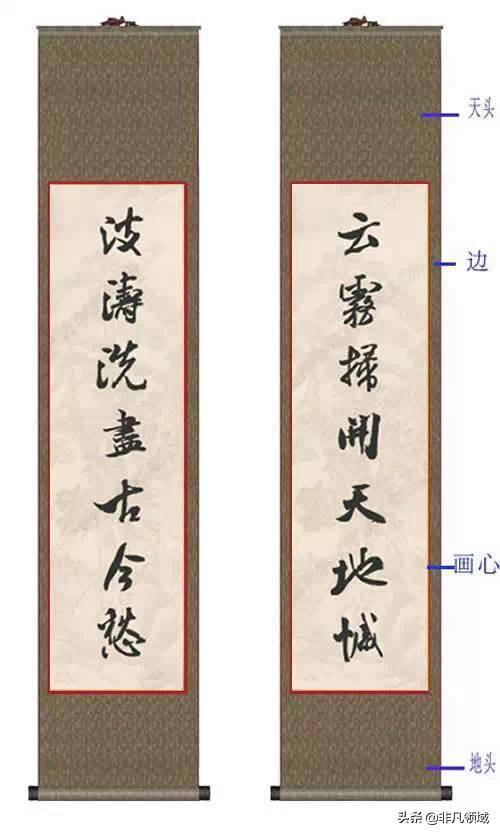 云霧掃開天地憾
波濤洗盡古今愁
天头
边
画心
地头
头条 @非凡领域